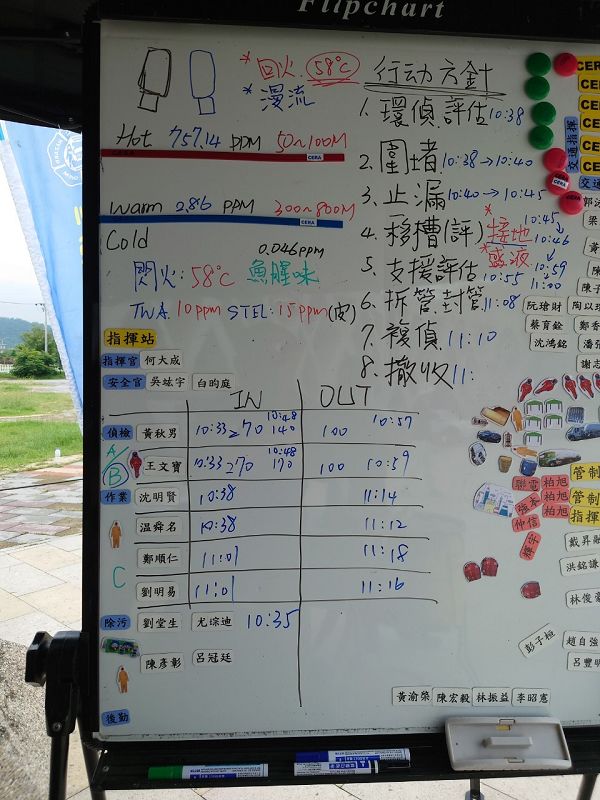 Flipchart
* 回火 58℃
* 漫流
Hot 757.14 PPM 50~100M
CERA
Warm 2.86 PPM 300~800M
CERA
Cold
0.046ppm
閃火: 58℃ 魚腥味
TWA 10ppm STEL: 15ppm(皮)
行动方針
1. 環偵評估 10:38
2. 圍堵 10:38→10:40
3. 止漏 10:40→10:45
4. 移槽(評) *接地 10:45
10:46
*盛液
5. 支援評估 10:55 10:59
11:00
6. 拆管.封管 11:08
7. 複偵 11:10
8. 撤收 11:
指揮站
指揮官 何大成
安全官 吳竑宇 白昀庭
IN OUT
偵檢 黃秋男 10:33 270 10:48 140 100 10:57
A/B 王文寶 10:33 270 10:48 170 100 10:59
作業 沈明賢 10:38 11:14
温舜名 10:38 11:12
鄭順仁 11:01 11:18
C 劉明易 11:01 11:16
除污 劉堂生 尤琮迪 10:35
陳彥彰 呂冠廷
後勤
CERA
CERA
CERA
CERA
CERA
CERA
交通指揮
交通
梁
黃
陳
陳子
阮瑲財 陶以
蔡育銓 鄭香
沈鴻銘 潘張
謝志
聯電 柏旭 管制
強本 柏旭 管制
仲信 柏旭 指揮
輝宇
戴昇
洪銘謙
林俊
彭子桓 趙自強
呂豐明
黃渝榮 陳宏毅 林振益 李昭憲